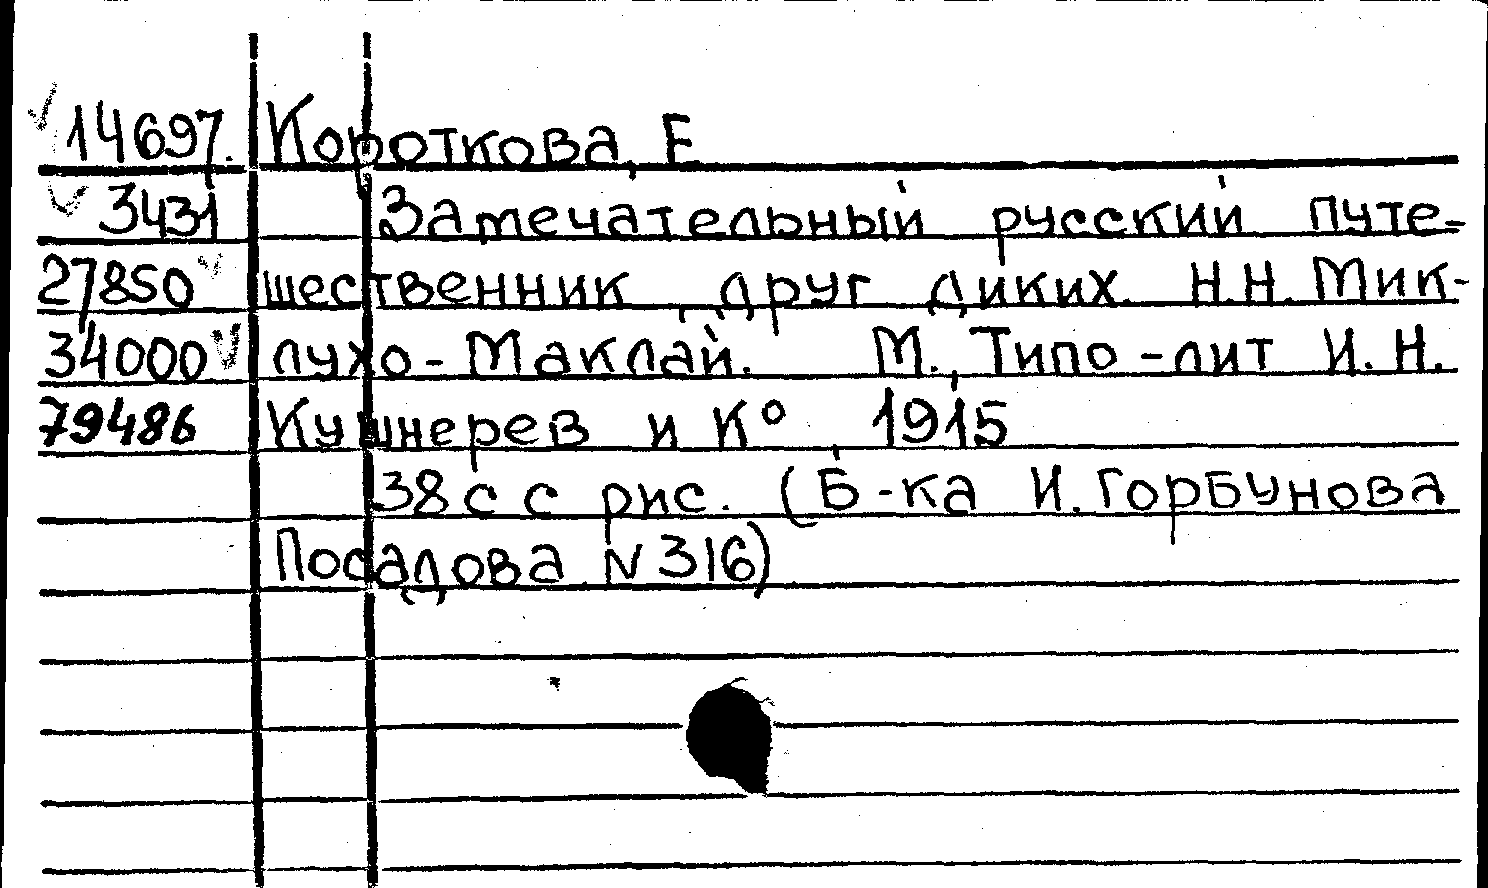 14697. Короткова, Е
3431 Замечательный русский путе-
27850 шественник, друг диких Н.Н. Мик-
34000 лухо-Маклай. М., Типо-лит И.Н.
79486 Кушнерев и К° 1915
38 с с рис. (Б-ка И. Горбунова
Посадова N 316)